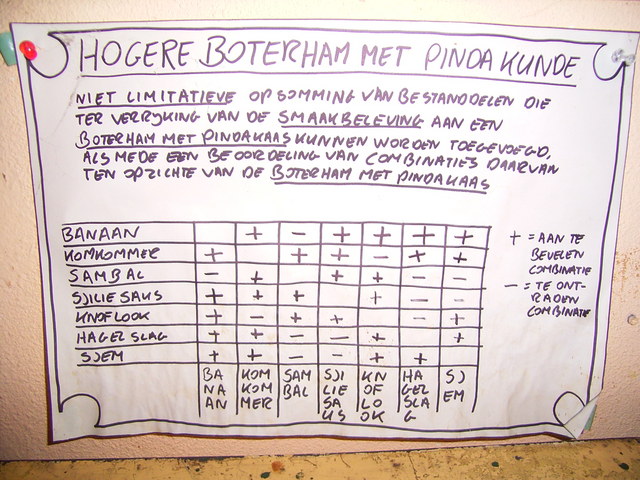 HOGERE BOTERHAM MET PINDA KUNDE
NIET LIMITATIEVE OPSOMMING VAN BESTANDDELEN DIE
TER VERRIJKING VAN DE SMAAKBELEVING AAN EEN
BOTERHAM MET PINDAKAAS KUNNEN WORDEN TOEGEVOEGD,
ALSMEDE EEN BEOORDELING VAN COMBINATIES DAARVAN
TEN OPZICHTE VAN DE BOTERHAM MET PINDAKAAS
BANAAN + - + + + +
KOMKOMMER + + + - + +
SAMBAL - + + + - -
SJILIE SAUS + + + + - -
KNOFLOOK + - + + - +
HAGELSLAG + + - - + +
SJEM + + - - + +
BA NA AN
KOM KOM MER
SAM BAL
SJI LIE SA US
KN OF LO OK
HA GEL SLA G
SJ EM
+ = AAN TE
BEVELEN
COMBINATIE
- = TE ONT-
RADEN
COMBINATIE